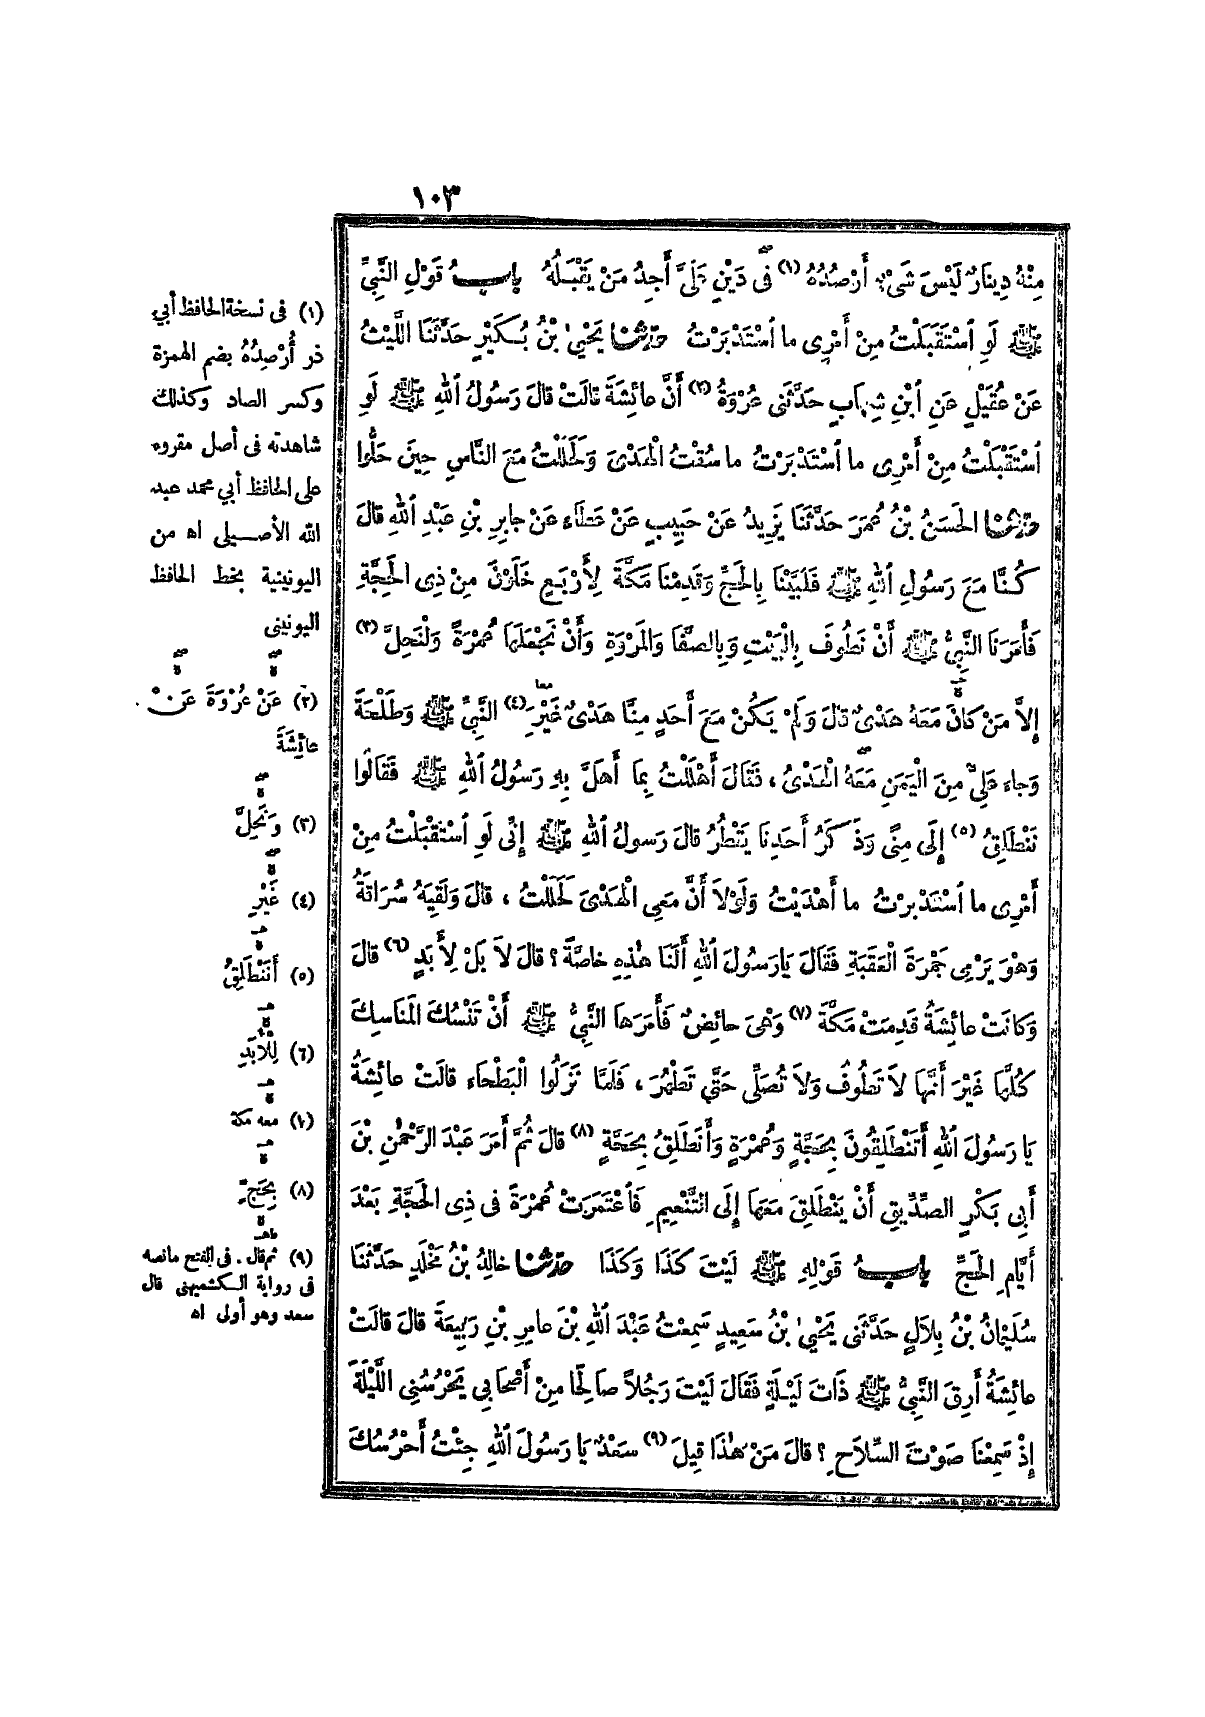 ١٠٣
مِنْهُ دِينَارٌ لَيْسَ شَىْءٌ أَرْصُدُهُ (١) فِى دَيْنٍ عَلَىَّ أَجِدُ مَنْ يَقْبَلُهُ بابُ قَوْلِ النَّبِىِّ
ﷺ لَوِ ٱسْتَقْبَلْتُ مِنْ أَمْرِى ما ٱسْتَدْبَرْتُ حَدَّثَنَا يَحْيَىٰ بْنُ بُكَيْرٍ حَدَّثَنَا اللَّيْثُ
عَنْ عُقَيْلٍ عَنِ ٱبْنِ شِهَابٍ حَدَّثَنِى عُرْوَةُ (٢) أَنَّ عائِشَةَ قالَتْ قالَ رَسُولُ ٱللهِ ﷺ لَوِ
ٱسْتَقْبَلْتُ مِنْ أَمْرِى ما ٱسْتَدْبَرْتُ ما سُقْتُ الْهَدْىَ وَلَحَلَلْتُ مَعَ النَّاسِ حِينَ حَلُّوا
حَدَّثَنَا الحَسَنُ بْنُ عُمَرَ حَدَّثَنَا يَزِيدُ عَنْ حَبِيبٍ عَنْ عَطَاءٍ عَنْ جابِرِ بْنِ عَبْدِ ٱللهِ قالَ
كُنَّا مَعَ رَسُولِ ٱللهِ ﷺ فَلَبَّيْنَا بِالْحَجِّ وَقَدِمْنَا مَكَّةَ لِأَرْبَعٍ خَلَوْنَ مِنْ ذِى الحِجَّةِ
فَأَمَرَنَا النَّبِىُّ ﷺ أَنْ نَطُوفَ بِالْبَيْتِ وَبِالصَّفَا وَالمَرْوَةِ وَأَنْ نَجْعَلَهَا عُمْرَةً وَلْنَحِلَّ (٣)
إِلاَّ مَنْ كانَ مَعَهُ هَدْىٌ قالَ وَلَمْ يَكُنْ مَعَ أَحَدٍ مِنَّا هَدْىٌ غَيْرَِ (٤) النَّبِىِّ ﷺ وَطَلْحَةَ
وَجاءَ عَلِىٌّ مِنَ الْيَمَنِ مَعَهُ الْهَدْىُ ، فَقَالَ أَهْلَلْتُ بِمَا أَهَلَّ بِهِ رَسُولُ ٱللهِ ﷺ فَقَالُوا
نَنْطَلِقُ (٥) إِلَى مِنًى وَذَكَرُ أَحَدِنَا يَقْطُرُ قالَ رَسولُ ٱللهِ ﷺ إِنِّى لَوِ ٱسْتَقْبَلْتُ مِنْ
أَمْرِى ما ٱسْتَدْبرْتُ ما أَهْدَيْتُ وَلَوْلاَ أَنَّ مَعِى الْهَدْىَ لَحَلَلْتُ ، قالَ وَلَقِيَهُ سُرَاقَةُ
وَهْوَ يَرْمِى جَمْرَةَ الْعَقَبَةِ فَقَالَ يَارَسُولَ ٱللهِ أَلَنَا هٰذِهِ خاصَّةً ؟ قالَ لاَ بَلْ لِأَبَدٍ (٦) قالَ
وَكانَتْ عائِشَةُ قَدِمَتْ مَكَّةَ (٧) وَهْىَ حائِضٌ فَأَمَرَهَا النَّبِىُّ ﷺ أَنْ تَنْسُكَ المَنَاسِكَ
كُلَّهَا غَيْرَ أَنَّهَا لاَ تَطُوفُ وَلاَ تُصَلِّى حَتَّى تَطْهُرَ ، فَلَمَّا نَزَلُوا الْبَطْحَاءَ قالَتْ عائِشَةُ
يَا رَسُولَ ٱللهِ أَتَنْطَلِقُونَ بِحَجَّةٍ وَعُمْرَةٍ وَأَنْطَلِقُ بِحَجَّةٍ (٨) قالَ ثُمَّ أَمَرَ عَبْدَ الرَّحْمٰنِ بْنَ
أَبِى بَكْرٍ الصِّدِّيقِ أَنْ يَنْطَلِقَ مَعَهَا إِلَى التَّنْعِيمِ فَٱعْتَمَرَتْ عُمْرَةً فى ذِى الحَجَّةِ بَعْدَ
أَيَّامِ الحَجِّ بابُ قَوْلِهِ ﷺ لَيْتَ كَذَا وَكَذَا حَدَّثَنَا خالِدُ بْنُ مَخْلَدٍ حَدَّثَنَا
سُلَيْمانُ بْنُ بِلاَلٍ حَدَّثَنِى يَحْيىٰ بْنُ سَعِيدٍ سَمِعْتُ عَبْدَ ٱللهِ بْنَ عامِرِ بْنِ رَبِيعَةَ قالَ قالَتْ
عائِشَةُ أَرِقَ النَّبِىُّ ﷺ ذَاتَ لَيْلَةٍ فَقَالَ لَيْتَ رَجُلاً صَالِحًا مِنْ أَصْحَابِى يَحْرُسُنِى اللَّيْلَةَ
إِذْ سَمِعْنَا صَوْتَ السِّلاَحِ ؟ قالَ مَنْ هٰذَا قِيلَ (٩) سَعْدٌ يَا رَسُولَ ٱللهِ جِئْتُ أَحْرُسُكَ
(١) فى نسخة الحافظ أبى
ذر أُرْصِدُهُ بضم الهمزة
وكسر الصاد وكذلك
شاهدته فى أصل مقروء
على الحافظ أبى محمد عبد
الله الأصيلى اه من
اليونينية بخط الحافظ
اليونينى
(٢) عَنْ عُرْوَةَ عَنْ
عائِشَةَ
(٣) وَنَحِلَّ
(٤) غَيْرِ
(٥) أَنَنْطَلِقُ
(٦) لِلْأَبَدِ
(٧) معه مكة
(٨) بِحَجٍّ
(٩) ثم قال . فى الفتح مانصه
فى رواية الكشميهنى قال
سعد وهو أولى اه